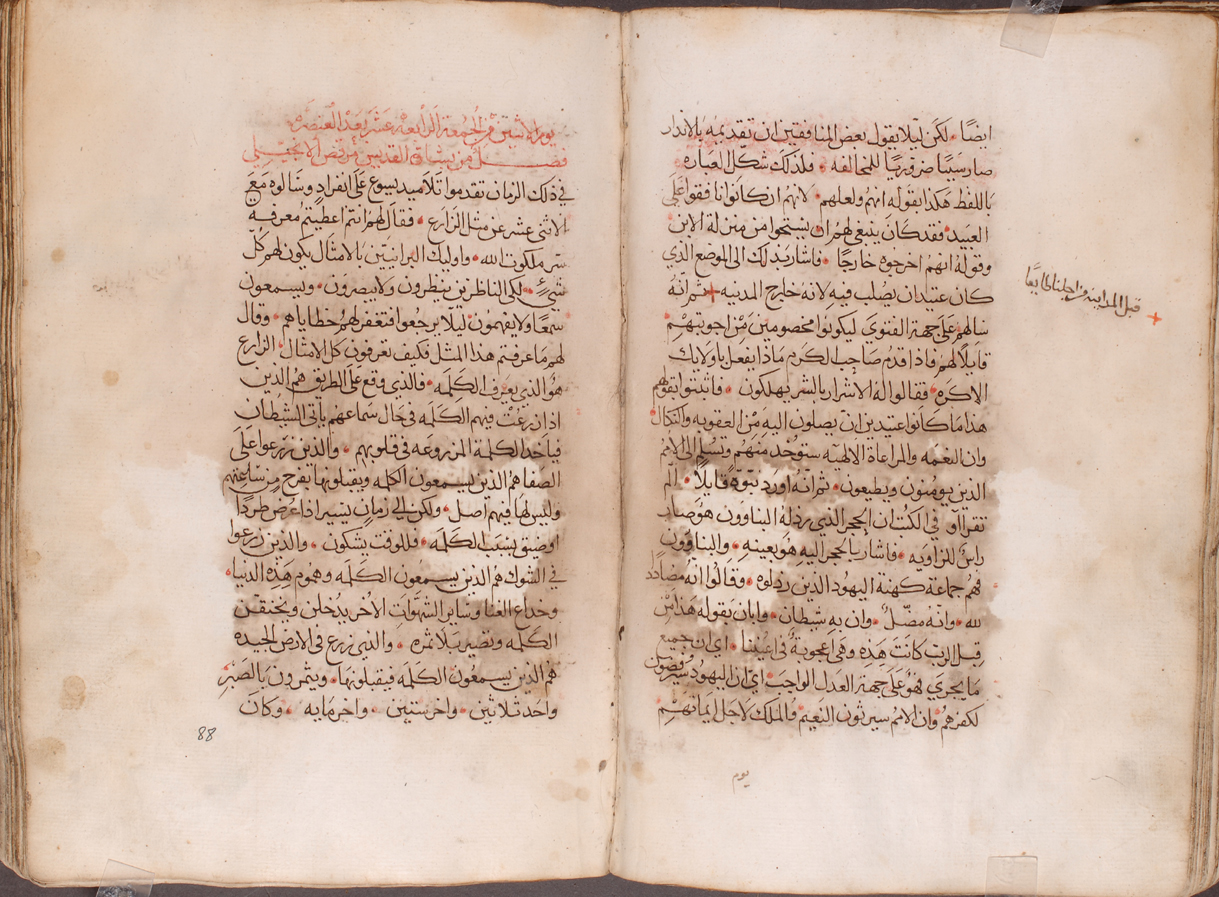 ايضًا • لكن ليلا يقول بعض المنافقين ان تقديمه بالاندار
صار سببًا ضروريًا للمخالفه • فلذلك شكل العباره
باللفظ هكذا بقوله انهم ولعلهم • لانهم ان كانوا نافقوا على
العبيد فقد كان ينبغي لهم ان يستحوا من منزلة الابن
وقوله انهم اخرجوه خارجا • فاشار بذلك الى الموضع الذي
كان عتيدان يصلب فيه لانه خارج المدينه + ثم انه
سالهم على جهة الفتوى ليكونوا مخصومين من اجوبتهم
قايلا لهم فاذا قدم صاحب الكرم ماذا يفعل باولايك
الاكره • فقالوا له الاشرار بالشر يهلكون • فاثبتوا بقولهم
هذا ما كانوا عتيدين ان يصلون اليه من العقوبه والنكال
وان النعمه والمراعاة الالهيه ستوخد منهم وتسلم الى الامم
الذين يومنون ويطيعون • ثم انه اورد نبوة قايلا • الم
تقراوا في الكتب ان الحجر الذي رذله البناوون هو صار
راس الزاويه • فاشار بالحجر اليه هو بعينه • والبناوون
فهم جماعة كهنة اليهود الذين رذلوه • وقالوا انه مضادد
لله • وانه مضل • وان به شيطان • وابان بقوله هذا من
قبل الرب كانت هذه وهي اعجوبة في اعيننا • اي ان جميع
ما يجري فهو على جهة العدل الواجب اي ان اليهود سيرفضون
لكفرهم وان الامم سيرثون النعيم فالملك لاجل ايمانهم
يوم
+ قبل المدينه من اجلنا طايعًا
يوم الاثنين من الجمعة الرابعة عشر بعد العنصره
فصل من بشارة القديس مرقص الانجيلي
في ذلك الزمان تقدموا تلاميد يسوع على انفراد وسالوه مع
الاثني عشر عن مثل الزارع • فقال لهم انتم اعطيتم معرفه
سر ملكوت الله • واوليك البرانيين بالامثال يكون لهم كل
شيء • لكي الناظرين ينظرون ولا يبصرون • ويسمعون
سمعًا ولا يفهمون ليلا يرجعوا فتغفر لهم خطاياهم • وقال
لهم ما عرفتم هذا المثل فكيف تعرفون كل الامثال • الزارع
هو الذي يعرف الكلمه • فالذي وقع على الطريق هم الذين
اذا زرعت فيهم الكلمه في حال سماعهم ياتي الشيطان
فياخذ الكلمة المزروعه في قلوبهم • والذين زرعوا على
الصفا هم الذين يسمعون الكلمه ويقبلونها بفرح من ساعتهم
وليس لها فيهم اصل • ولكن الي زمان يسير اذا عرض طردًا
او ضيق بسبب الكلمه • فللوقت يشكون • والذين زرعوا
في الشوك هم الذين يسمعون الكلمه وهموم هذه الدنيا •
وخداع الغنا وساير الشهوات الاخر يدخلن ويخنقن
الكلمه وتصير بلا ثمره • والذي زرع في الارض الجيده
هم الذين يسمعون الكلمه فيقبلونها • ويثمرون بالصبر
واحد ثلاثين • واخر ستين • واخر مايه • وكان
88